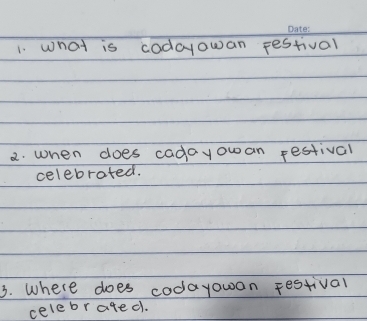 Date:
1. what is cadayawan Festival
2. when does cadayowan Festival
celebrated.
3. Where does codayowan Festival
celebrated.